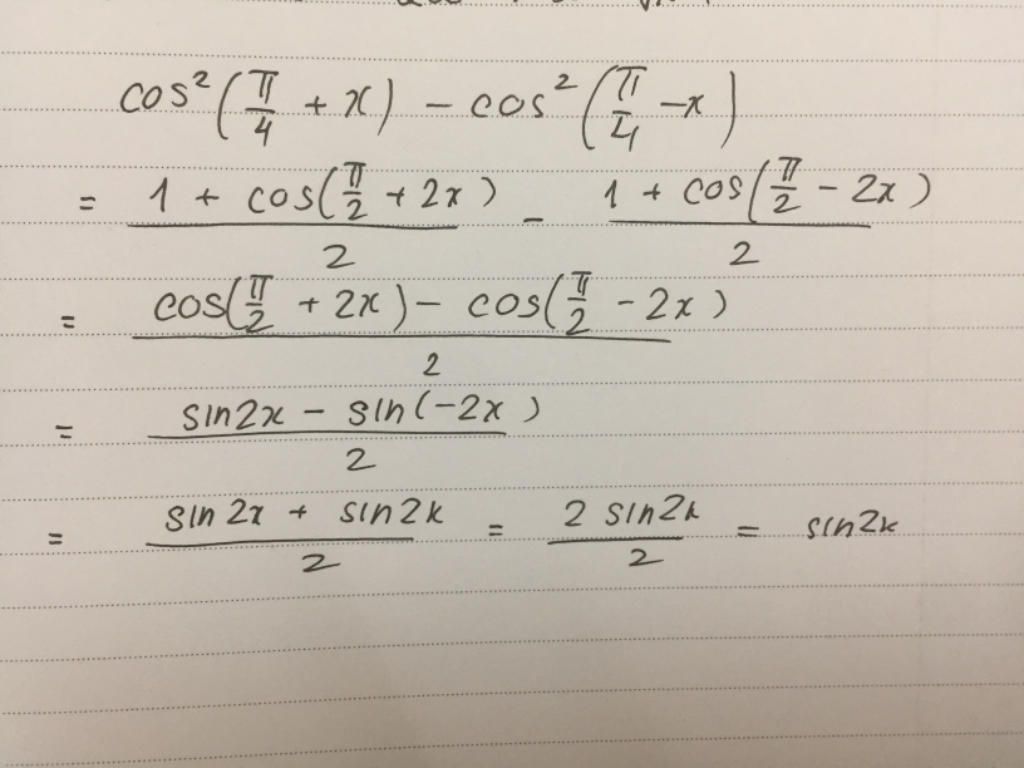 cos²(π/4 + x) - cos²(π/4 - x)
= (1 + cos(π/2 + 2x))/2 - (1 + cos(π/2 - 2x))/2
= (cos(π/2 + 2x) - cos(π/2 - 2x))/2
= (sin2x - sin(-2x))/2
= (sin2x + sin2x)/2 = (2 sin2x)/2 = sin2x